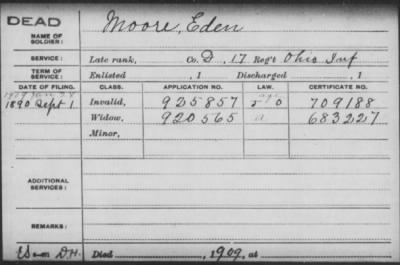 DEAD
NAME OF SOLDIER: Moore, Eden
SERVICE: Late rank, Co. D, 17 Reg't Ohio Inf
TERM OF SERVICE: Enlisted , 1 Discharged , 1
DATE OF FILING. CLASS. APPLICATION NO. LAW. CERTIFICATE NO.
1890 Sept 1 Invalid, 925857 709188
Widow, 920565 683227
Minor,
ADDITIONAL SERVICES:
REMARKS:
Died , 1909, at